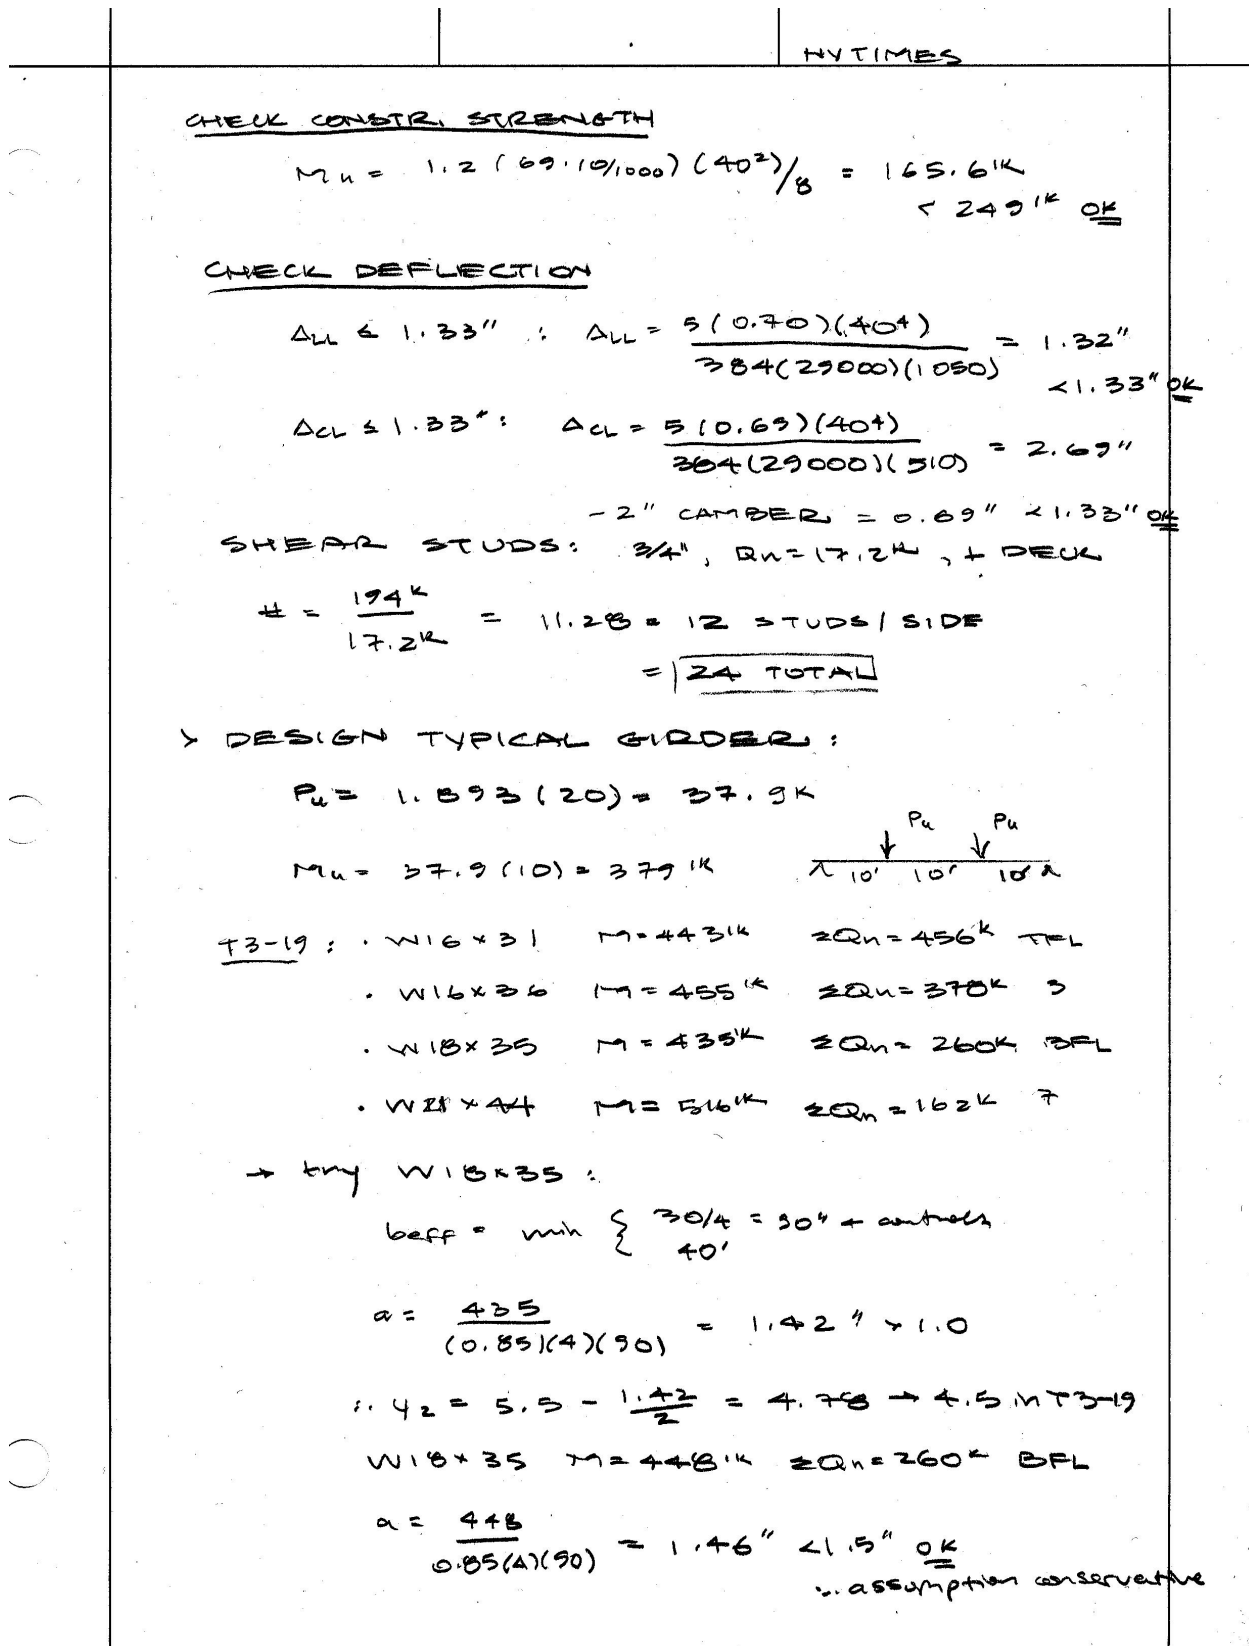 NYTIMES
CHECK CONSTR. STRENGTH
Mu = 1.2 (69.10/1000) (40²)/8 = 165.6'K
< 249'K OK
CHECK DEFLECTION
ΔLL ≤ 1.33" : ΔLL = 5(0.70)(40⁴) / 384(29000)(1050) = 1.32"
<1.33" OK
ΔCL ≤ 1.33": ΔCL = 5(0.69)(40⁴) / 384(29000)(510) = 2.69"
- 2" CAMBER = 0.69" <1.33" OK
SHEAR STUDS: 3/4", Qn=17.2K, ⊥ DECK
# = 194K / 17.2K = 11.28 = 12 STUDS/SIDE
= 24 TOTAL
> DESIGN TYPICAL GIRDER:
Pu = 1.893(20) = 37.9K
Pu Pu
Mu = 37.9(10) = 379'K
10' 10' 10'
T3-19: · W16×31 M=443'K ΣQn=456K TFL
· W16×36 M=455'K ΣQn=378K 3
· W18×35 M=435'K ΣQn=260K BFL
· W21×44 M=516'K ΣQn=162K 7
→ try W18×35:
beff = min { 30/4 = 90" ← controls
40'
a = 435 / (0.85)(4)(90) = 1.42" > 1.0
∴ Y2 = 5.5 - 1.42/2 = 4.78 → 4.5 in T3-19
W18×35 M=448'K ΣQn=260K BFL
a = 448 / 0.85(4)(90) = 1.46" <1.5" OK
∴ assumption conservative